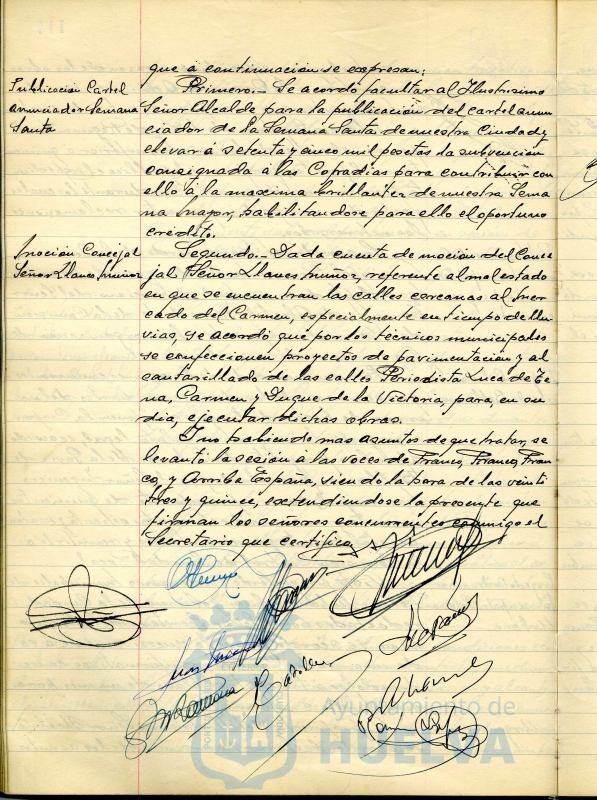 que á continuación se expresan:
Publicación Cartel
anunciador Semana
Santa
Primero.- Se acordó facultar al Ilustrisimo
Señor Alcalde para la publicación del cartel anun
ciador de la Semana Santa de nuestra Ciudad y
elevar á setenta y cinco mil pesetas la subvencion
consignada á las Cofradias para contribuir con
ello á la maxima brillantez de nuestra Sema
na Mayor, habilitandose para ello el oportuno
credito.
Moción Concejal
Señor Llanes Muñoz
Segundo.- Dada cuenta de moción del Conce
jal Señor Llanes Muñoz, referente al mal estado
en que se encuentran las calles cercanas al Mer
cado del Carmen, especialmente en tiempo de llu
vias, se acordó que por los técnicos municipales
se confeccionen proyectos de pavimentacion y al
cantarillado de las calles Periodista Luca de Te
na, Carmen y Duque de la Victoria, para, en su
dia, ejecutar dichas obras.
Y no habiendo mas asuntos de que tratar, se
levantó la sesión á las voces de Franco, Franco, Fran
co, y Arriba España, siendo la hora de las veinti
tres y quince, extendiendose la presente que
firman los señores concurrentes conmigo el
Secretario que certifico
Ayuntamiento de
HUELVA